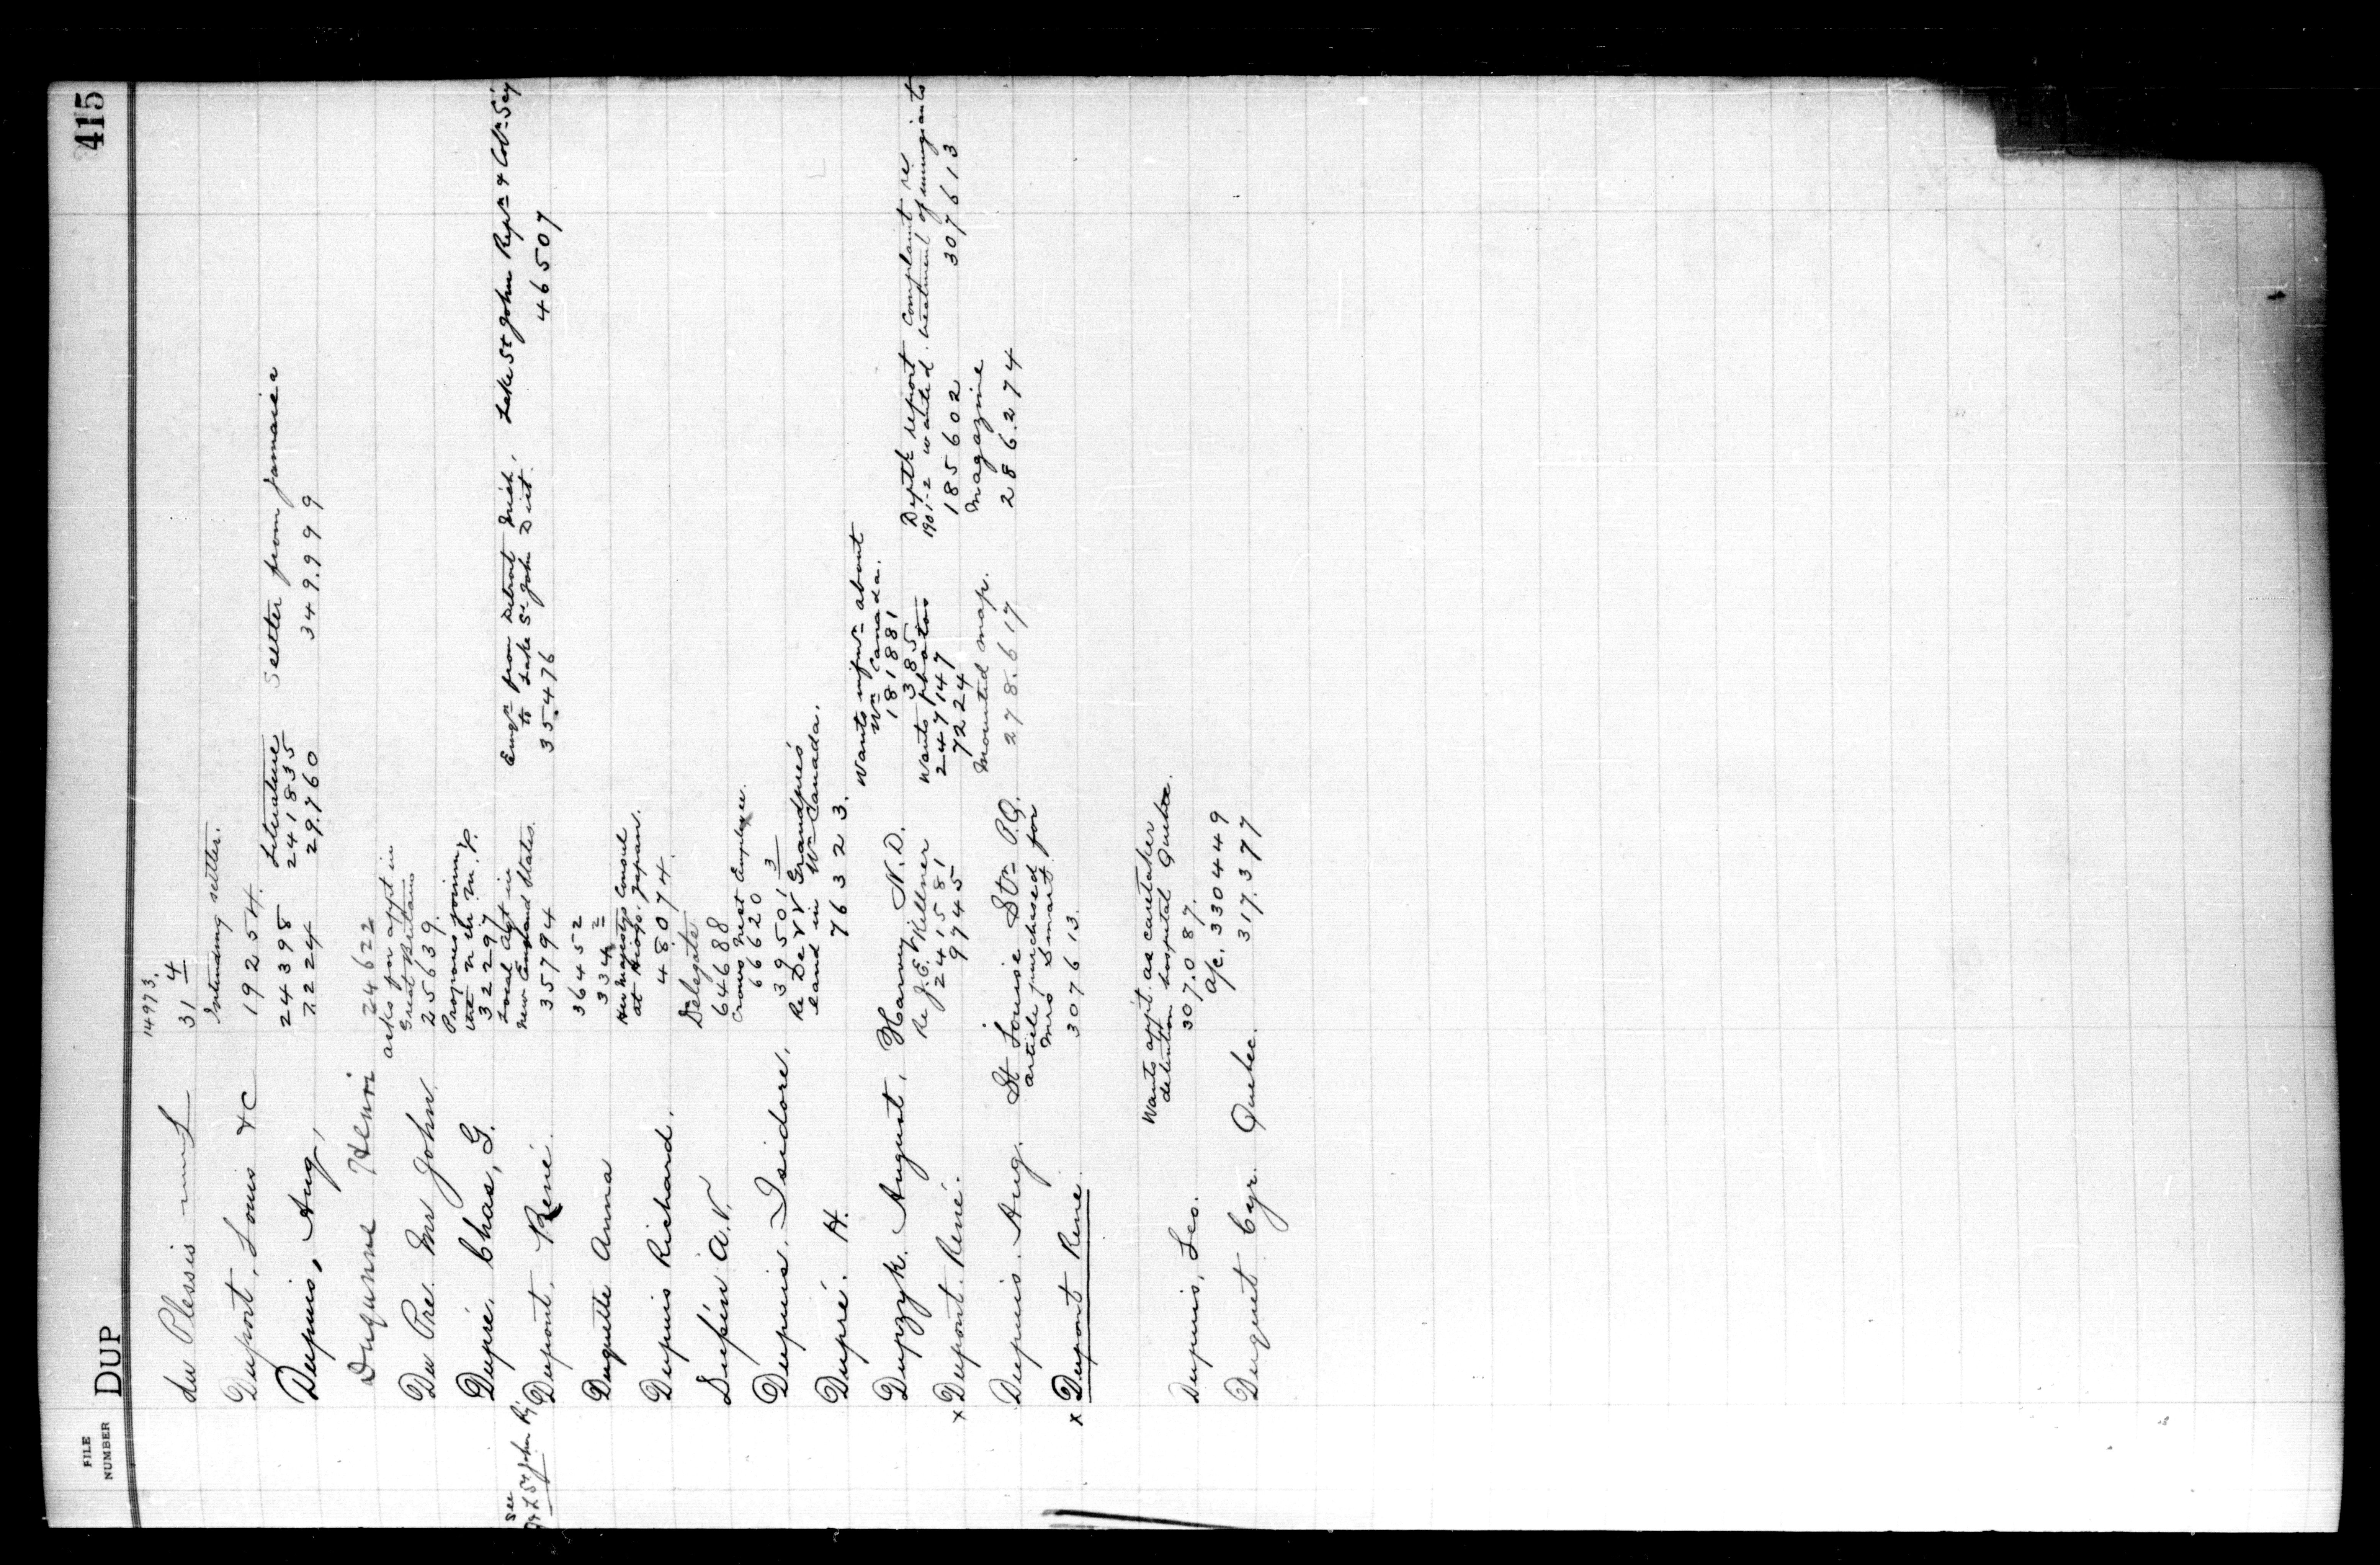 FILE NUMBER DUP 415
14973.
du Plessis 31 4
Intending settler.
Duport, Louis & C 19254.
Literature Settler from Jamaica
Dupuis, Aug, 24398 241835
7224 29.760 349.999
Duquenne Henri 24622
asks for appt in
Great Britain
Du Pre. Mr John. 25639.
Proposes joining
the N.W.M.P.
Dupré, Chas, G. 32297
Local Agt in
New England States.
Emgn from Detroit Mich, Lake St John Repn & Coln Socy
to Lake St John Dist.
see
Q & L St John Ry
Dupont, René. 35794 35.476 46507
Duquette Anna 36452
334 2
Her Majestys Consul
at Hiogo. Japan.
Dupuis Richard. 48074.
Delegate
Dupin A.V. 64688
Crows Nest Employee.
66620
Dupuis. Isidore. 39501 3
Re De VV Grandpré's
land in Wn Canada.
Dupré. H. 76323.
Wants infmn about
Wn Canada.
Dupzyk. August. Harvey N.D. 181881
385
Deptl report Complaint re
1901-2 wanted. treatment of immigrants
Re J.E. Killner Wants photos
x Dupont. René. 241581 247147 185602 307613
9745 7224
Mounted map. Magazine
Dupuis. Aug. St Louise Stn P.Q. 278.617 286.274
article purchased for
Mrs Smart
x Dupont Rene. 307613.
Wants appt. as caretaker
detention hospital Quebec.
Dupuis, Leo. 307.087.
a/c. 330449
Duquet Cyr. Quebec. 317.377